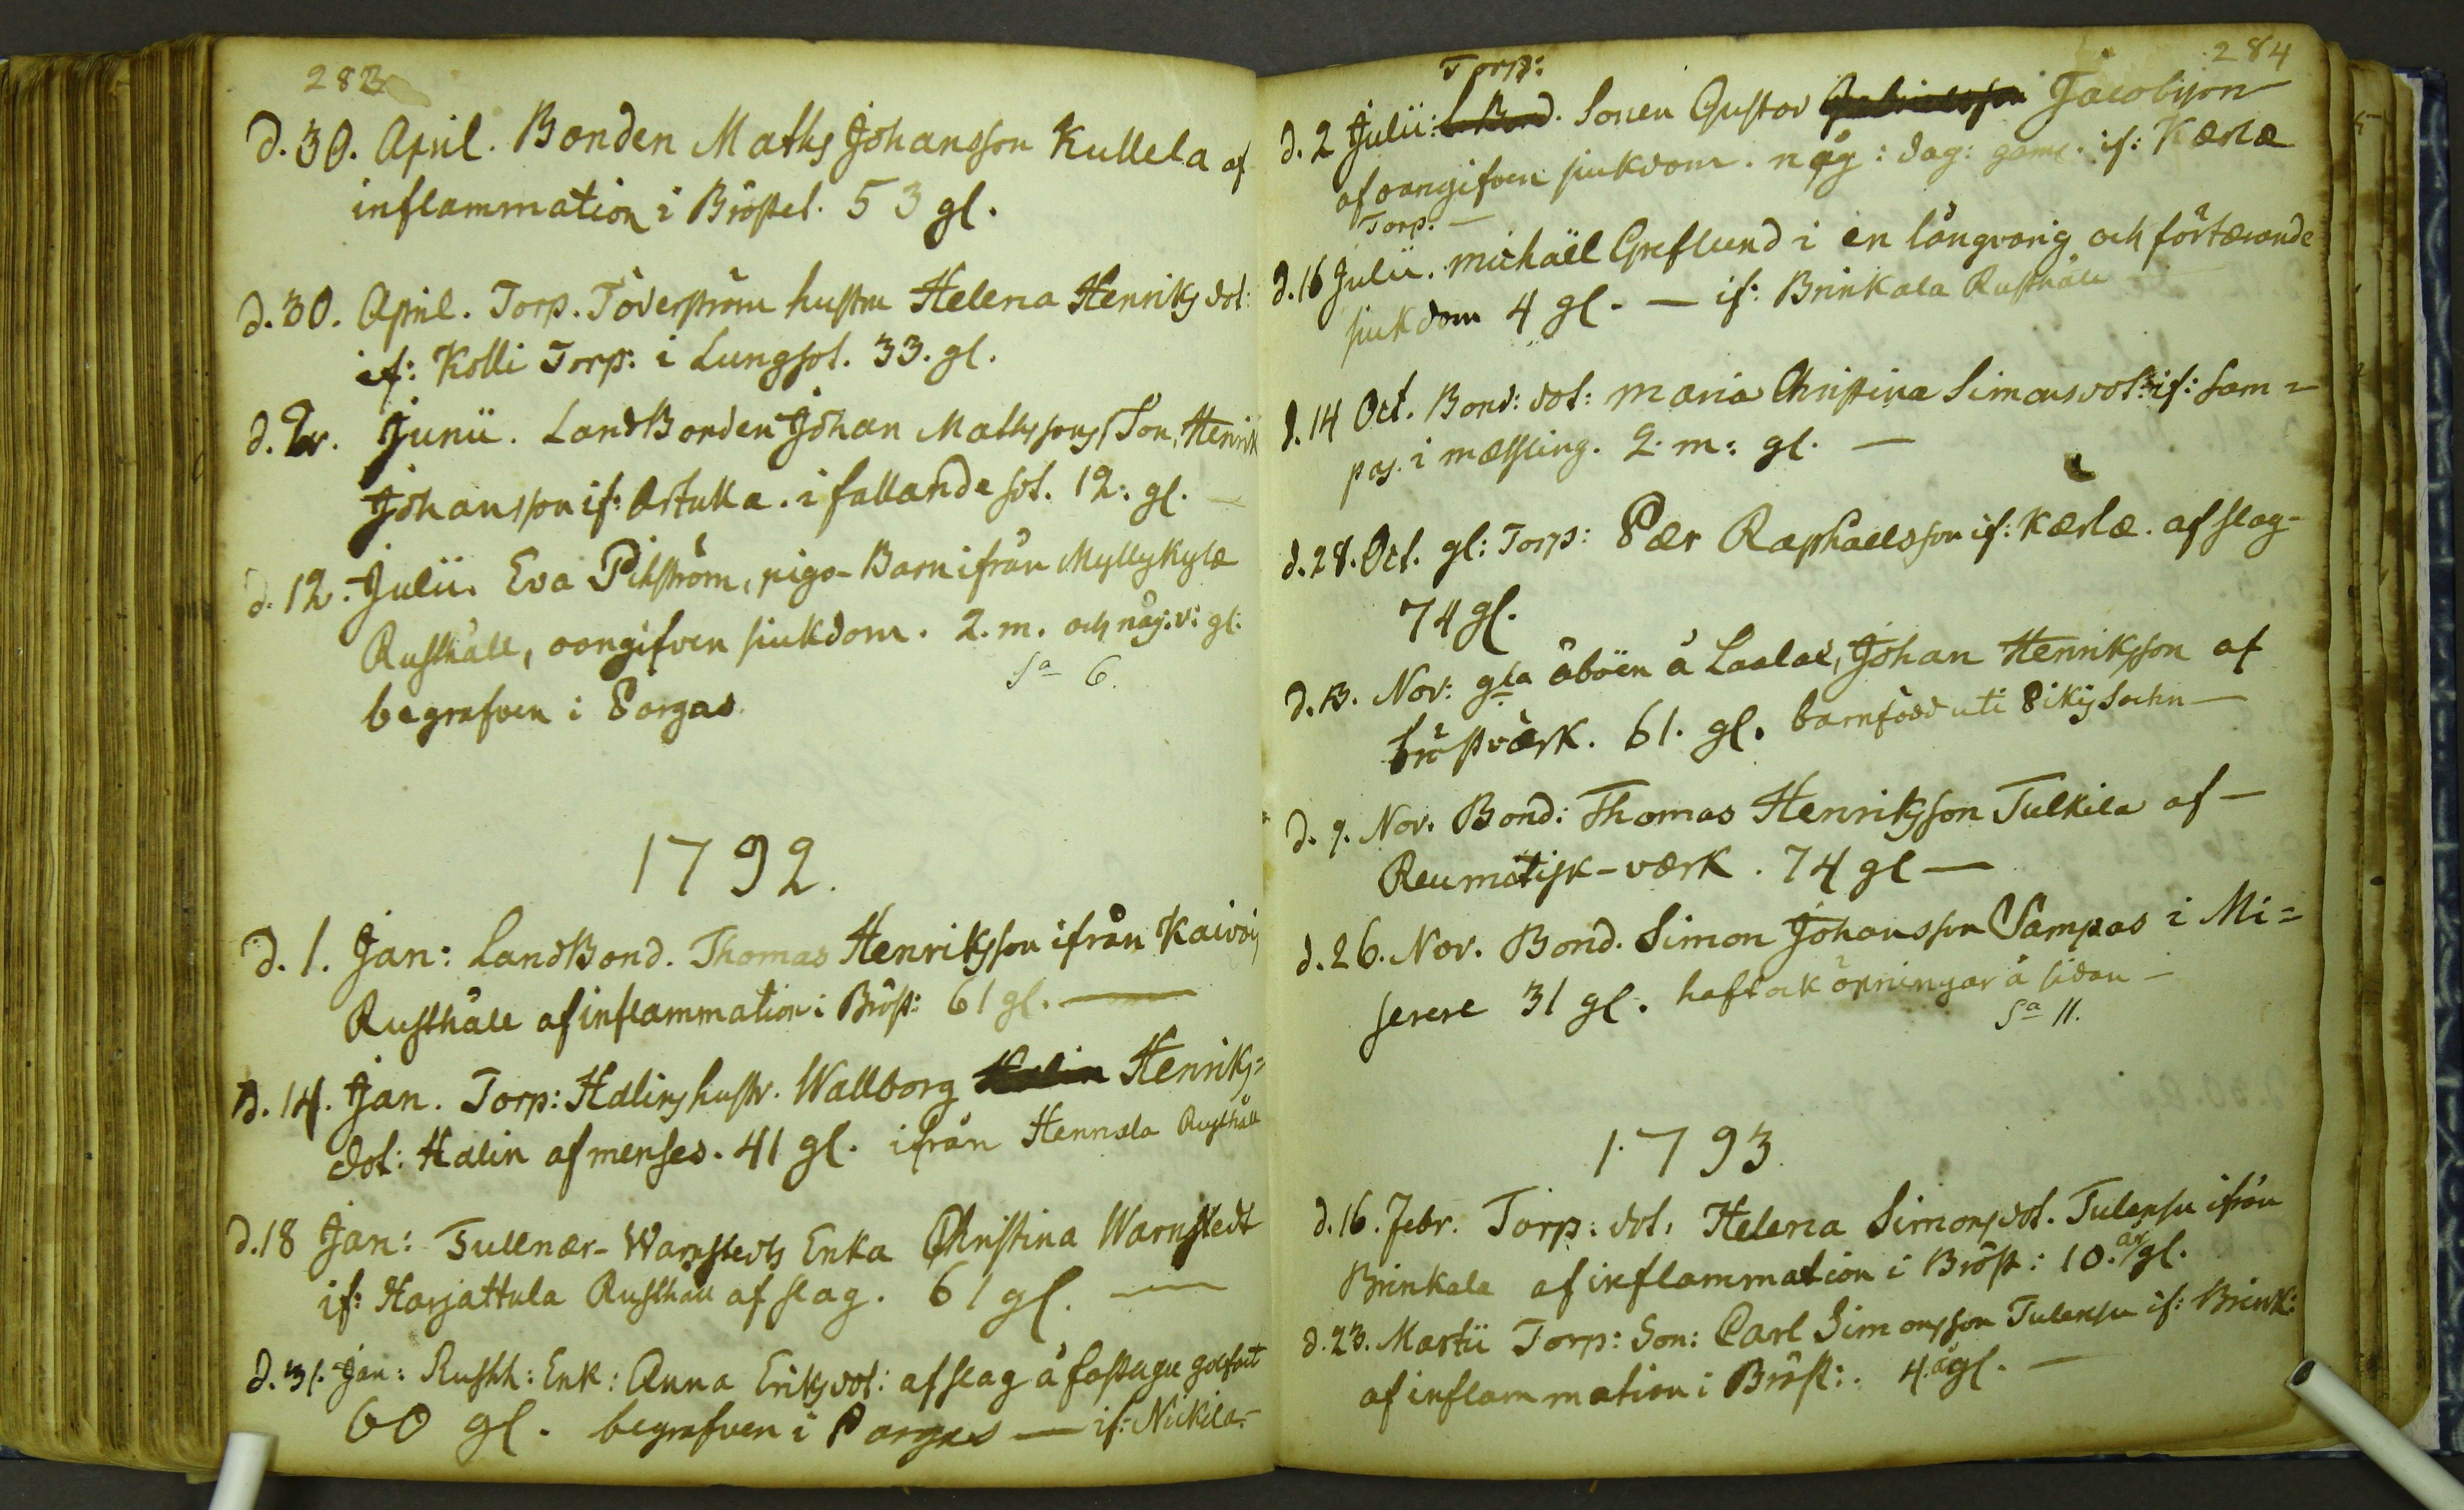 283
d. 30. April. Bonden Maths Johansson Kullela af
inflammation i Bröstet. 53 gl.
d. 30. April. Torp. Söderström hustru Helena Henriks dot:
if: Kolli Torp: i Lungsot. 33. gl.
d. Junii. LandBonden Johan Mathssons Son, Henrik
Johansson if: Ostuka. i fallande sot. 12. gl. —
d. 12. Julii. Eva Pihström, pigo-Barn ifrån Myllykylæ
Rusthåll, oangifven siukdom. 2. m. och någ. v: gl:
begrafven i Pargas.
Sa 6.
1792.
d. 1. Jan: LandBond. Thomas Henriksson ifrån Kaivois
Rusthåll af inflammation i Bröst: 61 gl. —
d. 14. Jan. Torp: Halins hustr. Wallborg Halin Henriks=
dot: Halin af menses. 41 gl. ifrån Hennala Rusthåll
d. 18 Jan: Tullnær-Warnstedts Enka Christina Warnstedt
if: Harjattula Rusthåll af slag. 61 gl. —
d. 31. Jan: Rusth: Enk: Anna Eriksdot: af slag å fastugu golfvet
60 gl. begrafven i Pargas — if: Nickila.—
284
Torp:
d. 2 Julii: L. Bond. Sonen Gustav Gabrielsson Jacobsson
af oangifven siukdom. någ: dag: gaml. if: Kærlæ
Torp. —
d. 16 Julii. Michaël Greflund i en långvarig och förtærande
siukdom 4 gl. — if: Brinkala Rusthåll
d. 14 Oct. Bond: dot: Maria Christina Simonsdot: if: Sam=
pas. i mæssling. 2. m: gl. —
d. 28. Oct. gl: Torp: Pær Raphaelsson if: Kærlæ. af slag-
74 gl.
d. 13. Nov: gla åboen å Laalax, Johan Henriksson af
bröstvärk. 61. gl. barnfödd uti Pikis Sochn —
d. 9. Nov. Bond: Thomas Henriksson Tulkila af —
Reumatisk-værk. 74 gl —
d. 26. Nov. Bond. Simon Johansson Sampas i Mi=
serere 31 gl. haft ock öpningar å sidan —
Sa 11.
1793.
d. 16. Febr. Torp: dot: Helena Simonsdot. Tulensu ifrån
Brinkala af inflammation i Bröst: 10. år gl.
d. 23. Martii Torp: Son: Carl Simonsson Tulensu if: Brink:
af inflammation i Bröst:. 4. å gl. —